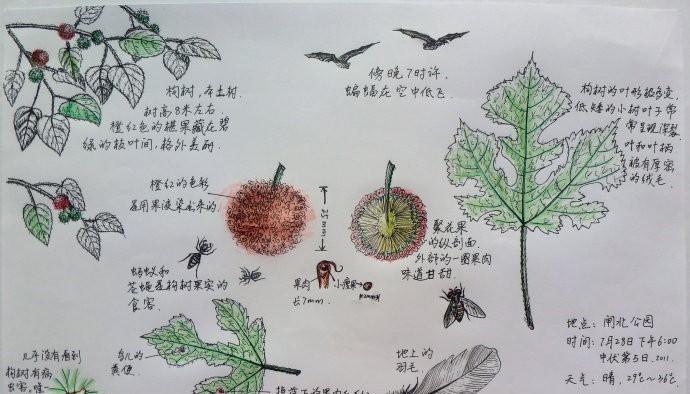 构树，本土树.
树高8米左右.
橙红色的椹果藏在碧
绿的枝叶间，格外美丽.
傍晚7时许，
蝙蝠在空中低飞.
构树的叶形极多变.
低矮的小树叶子常
常呈现深裂.
叶和叶柄
被有厚密
的绒毛.
橙红的色彩
是用果液染出来的
25mm
聚花果
的纵剖面.
外部的一圈果肉
味道甘甜.
蚂蚁和
苍蝇是构树果实的
食客.
果肉
长7mm.
小瘦果
地点：闸北公园
时间：7月28日 下午6:00
中伏第5日.2011.
天气：晴，29℃~36℃.
几乎没有看到
构树有病
虫害.唯一
鸟儿的
粪便.
地上的
羽毛.